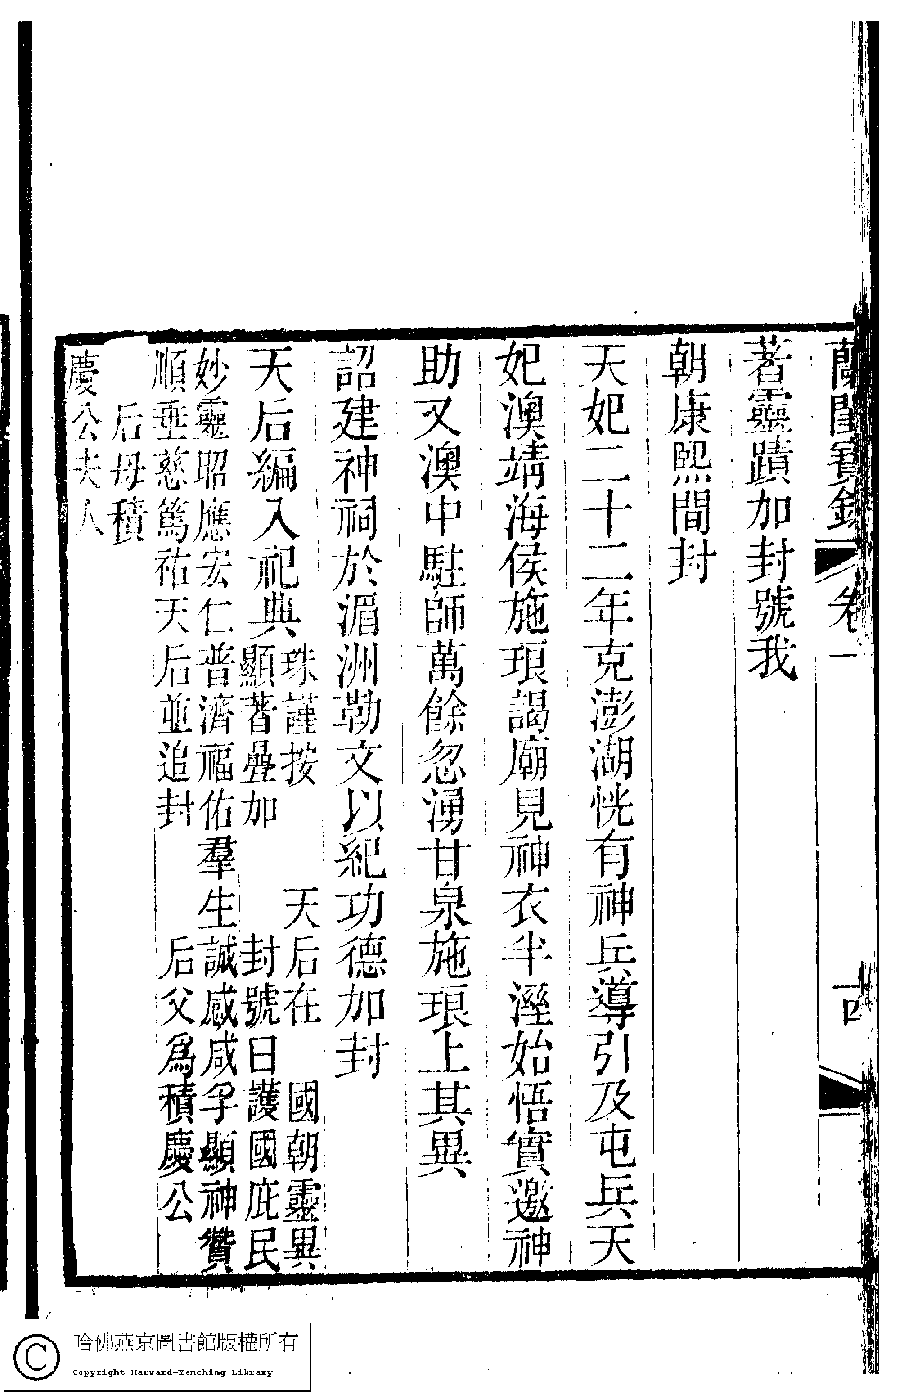 蘭閨寶錄 卷一 古
著靈蹟加封號我
朝康熙間封
天妃二十二年克澎湖恍有神兵導引及屯兵天
妃澳靖海侯施琅謁廟見神衣半溼始悟實邀神
助又澳中駐師萬餘忽湧甘泉施琅上其異
詔建神祠於湄洲勒文以紀功德加封
天后編入祀典
珠謹按 天后在 國朝靈異
顯著疊加 封號曰護國庇民
妙靈昭應宏仁普濟福佑羣生誠感咸孚顯神贊
順垂慈篤祐天后並追封 后父爲積慶公
后母積
慶公夫人
哈佛燕京圖書館版權所有
Copyright Harvard-Yenching Library